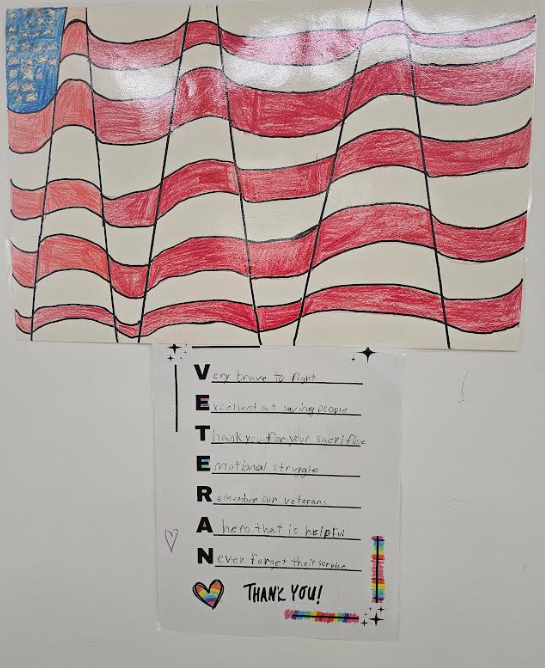 Very brave to fight
Excellent at saving people
Thank you for your sacrifice
Emotional struggle
Remember our veterans
A hero that is helpful
Never forget their service
THANK YOU!